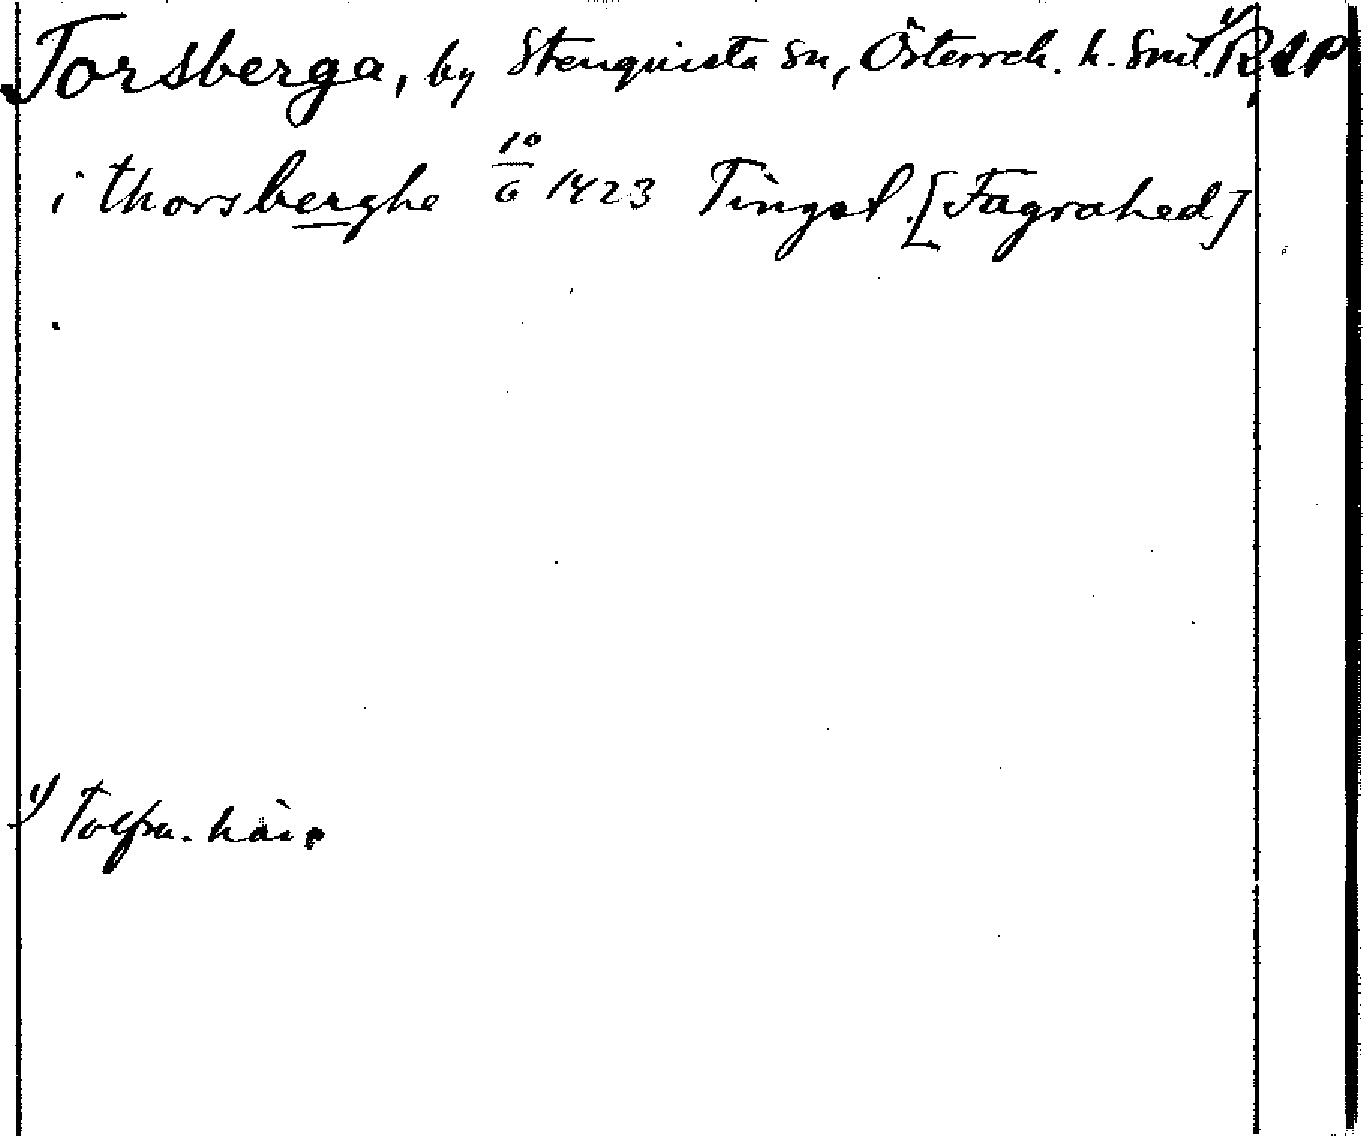 Torsberga, by Stenquista sn, Österreh. h. Srml. 1) R &P
i thorsberghe 10/6 1423 Tingst. [Fagrahed]
1) Tolfta. här.